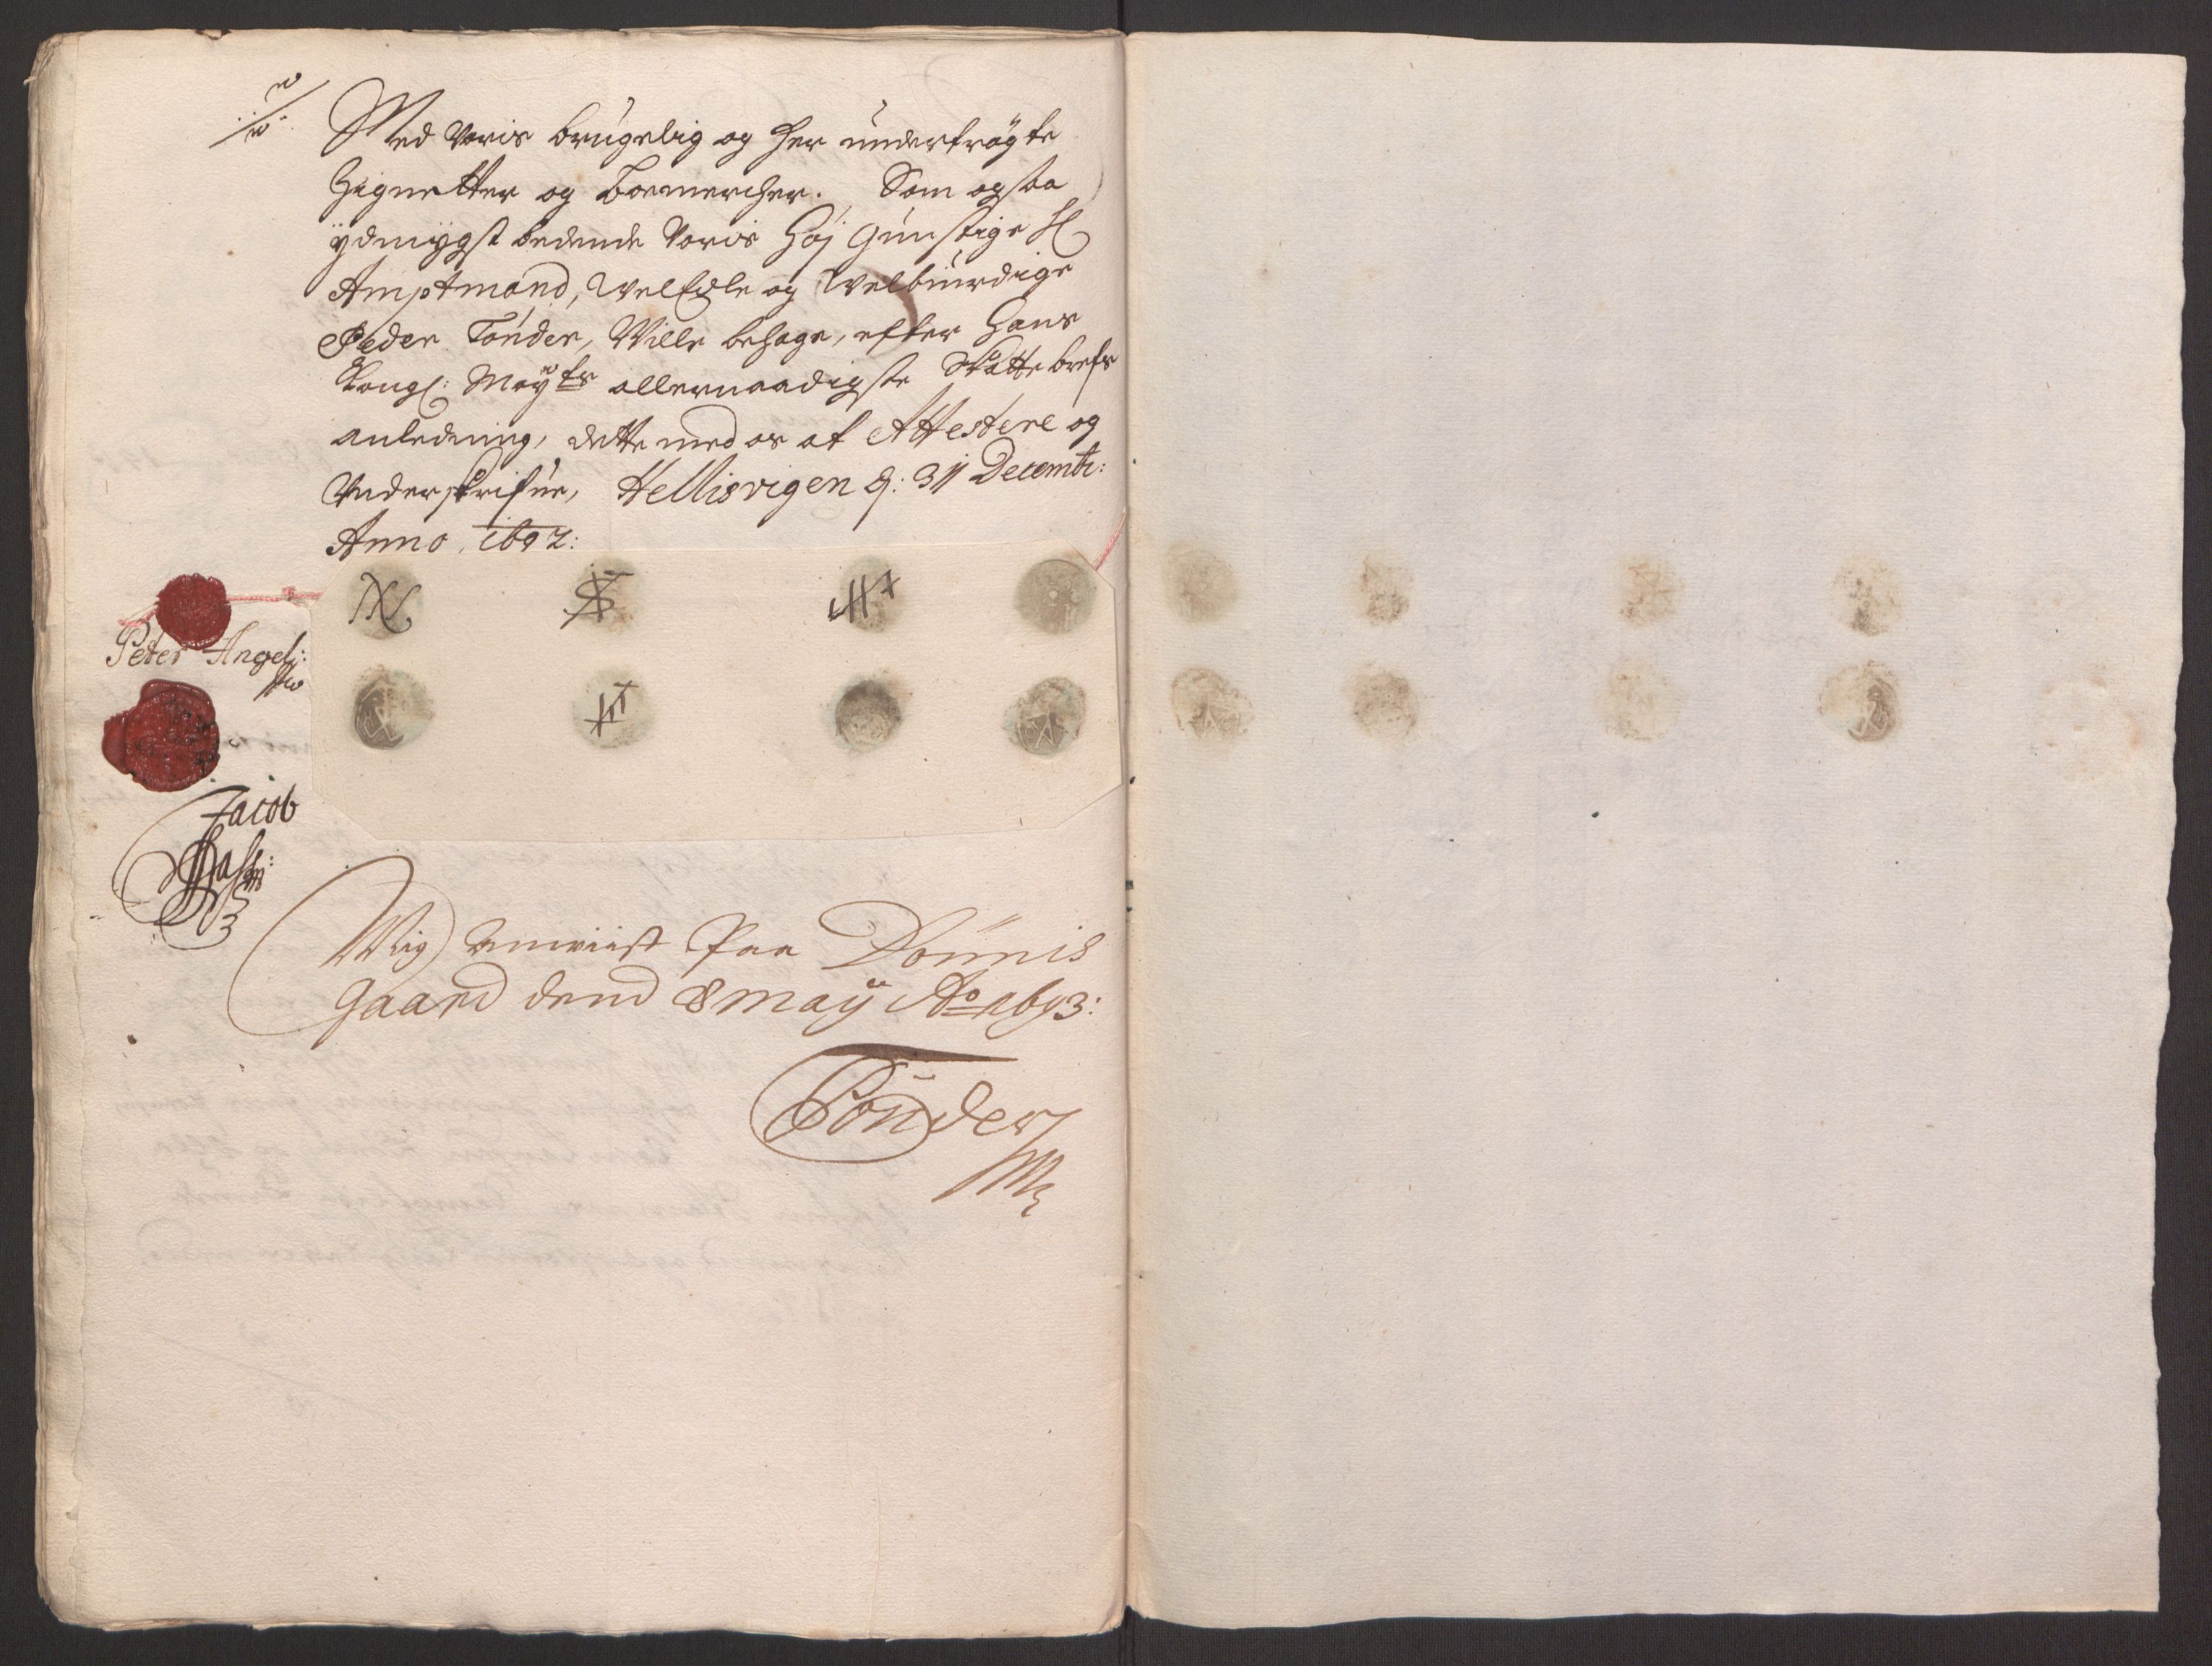 Med Voris brugelig og her undertrögte
Zignetter og Boemercher. Som ogsaa
ÿdmÿgst bedende Voris Höj Gunstige H
Amptmand, WelEdle og Welbiurdige
Peder Tönder, Wille behage, efter Hans
Kongl: Maÿts allernaadigste Skatte brefs
anledning, dette med os at Attestere og
Underskrifue, Hellisvigen d: 31 Decembr:
Anno 1692:
Peter Angel:
Jacob
Wiß anviist Paa Dönnis
gaard dend 8 maÿ Ao 1693:
Tönder